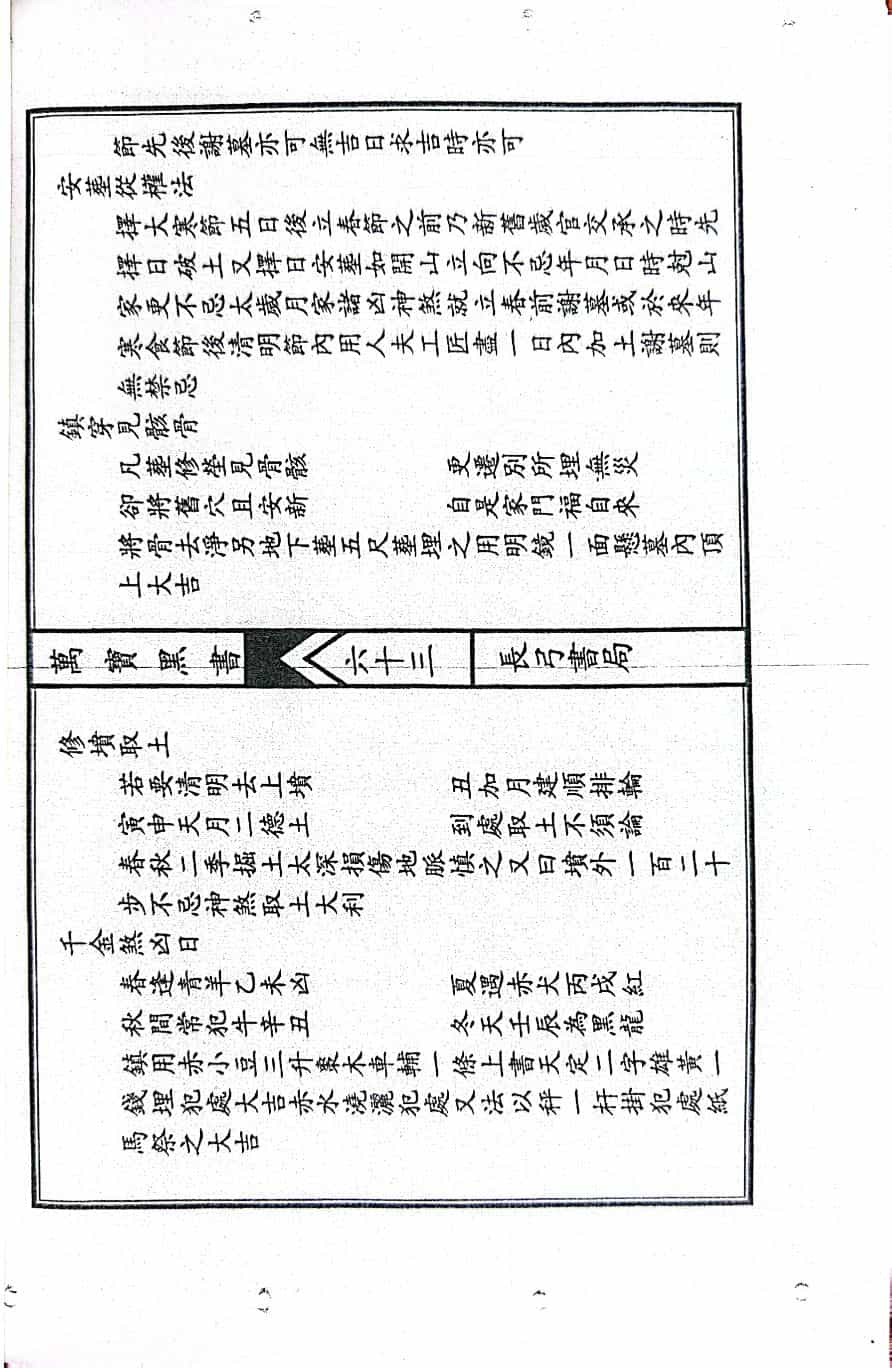 節先後謝墓亦可無吉日求吉時亦可
安葬從權法
擇大寒節五日後立春節之前乃新舊歲官交承之時先
擇日破土又擇日安葬如開山立向不忌年月日時尅山
家更不忌太歲月家諸凶神煞就立春前謝墓或於來年
寒食節後清明節內用人夫工匠盡一日內加土謝墓則
無禁忌
鎮穿見骸骨
凡葬修塋見骨骸　更遷別所埋無災
卻將舊穴且安新　自是家門福自來
將骨去淨另地下葬五尺葬埋之用明鏡一面懸墓內頂
上大吉
萬寶黑書　六十三　長弓書局
修墳取土
若要清明去上墳　丑加月建順排輪
寅申天月二德土　到處取土不須論
春秋二季掘土太深損傷地脈慎之又曰墳外一百二十
步不忌神煞取土大利
千金煞凶日
春逢青羊乙未凶　夏遇赤犬丙戌紅
秋間常犯牛辛丑　冬天壬辰為黑龍
鎮用赤小豆三升棗木車輔一條上書天定二字雄黃一
錢埋犯處大吉赤水澆灑犯處又法以秤一杆掛犯處紙
馬祭之大吉